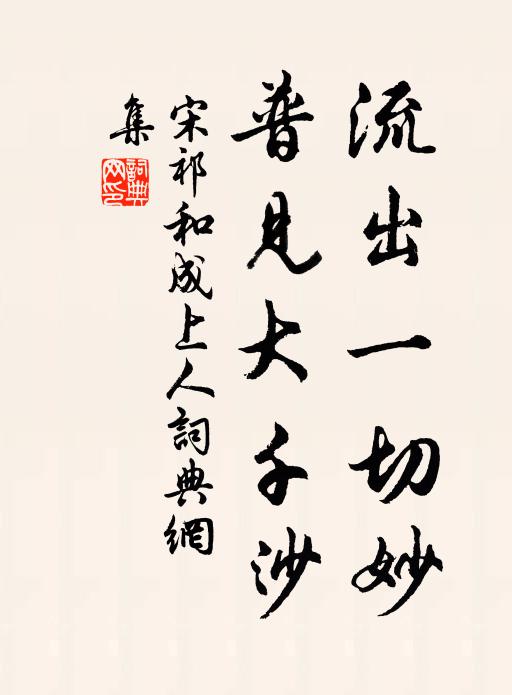 流出一切妙
普見大千沙
宋祁和成上人詞典網
集
詞典網印